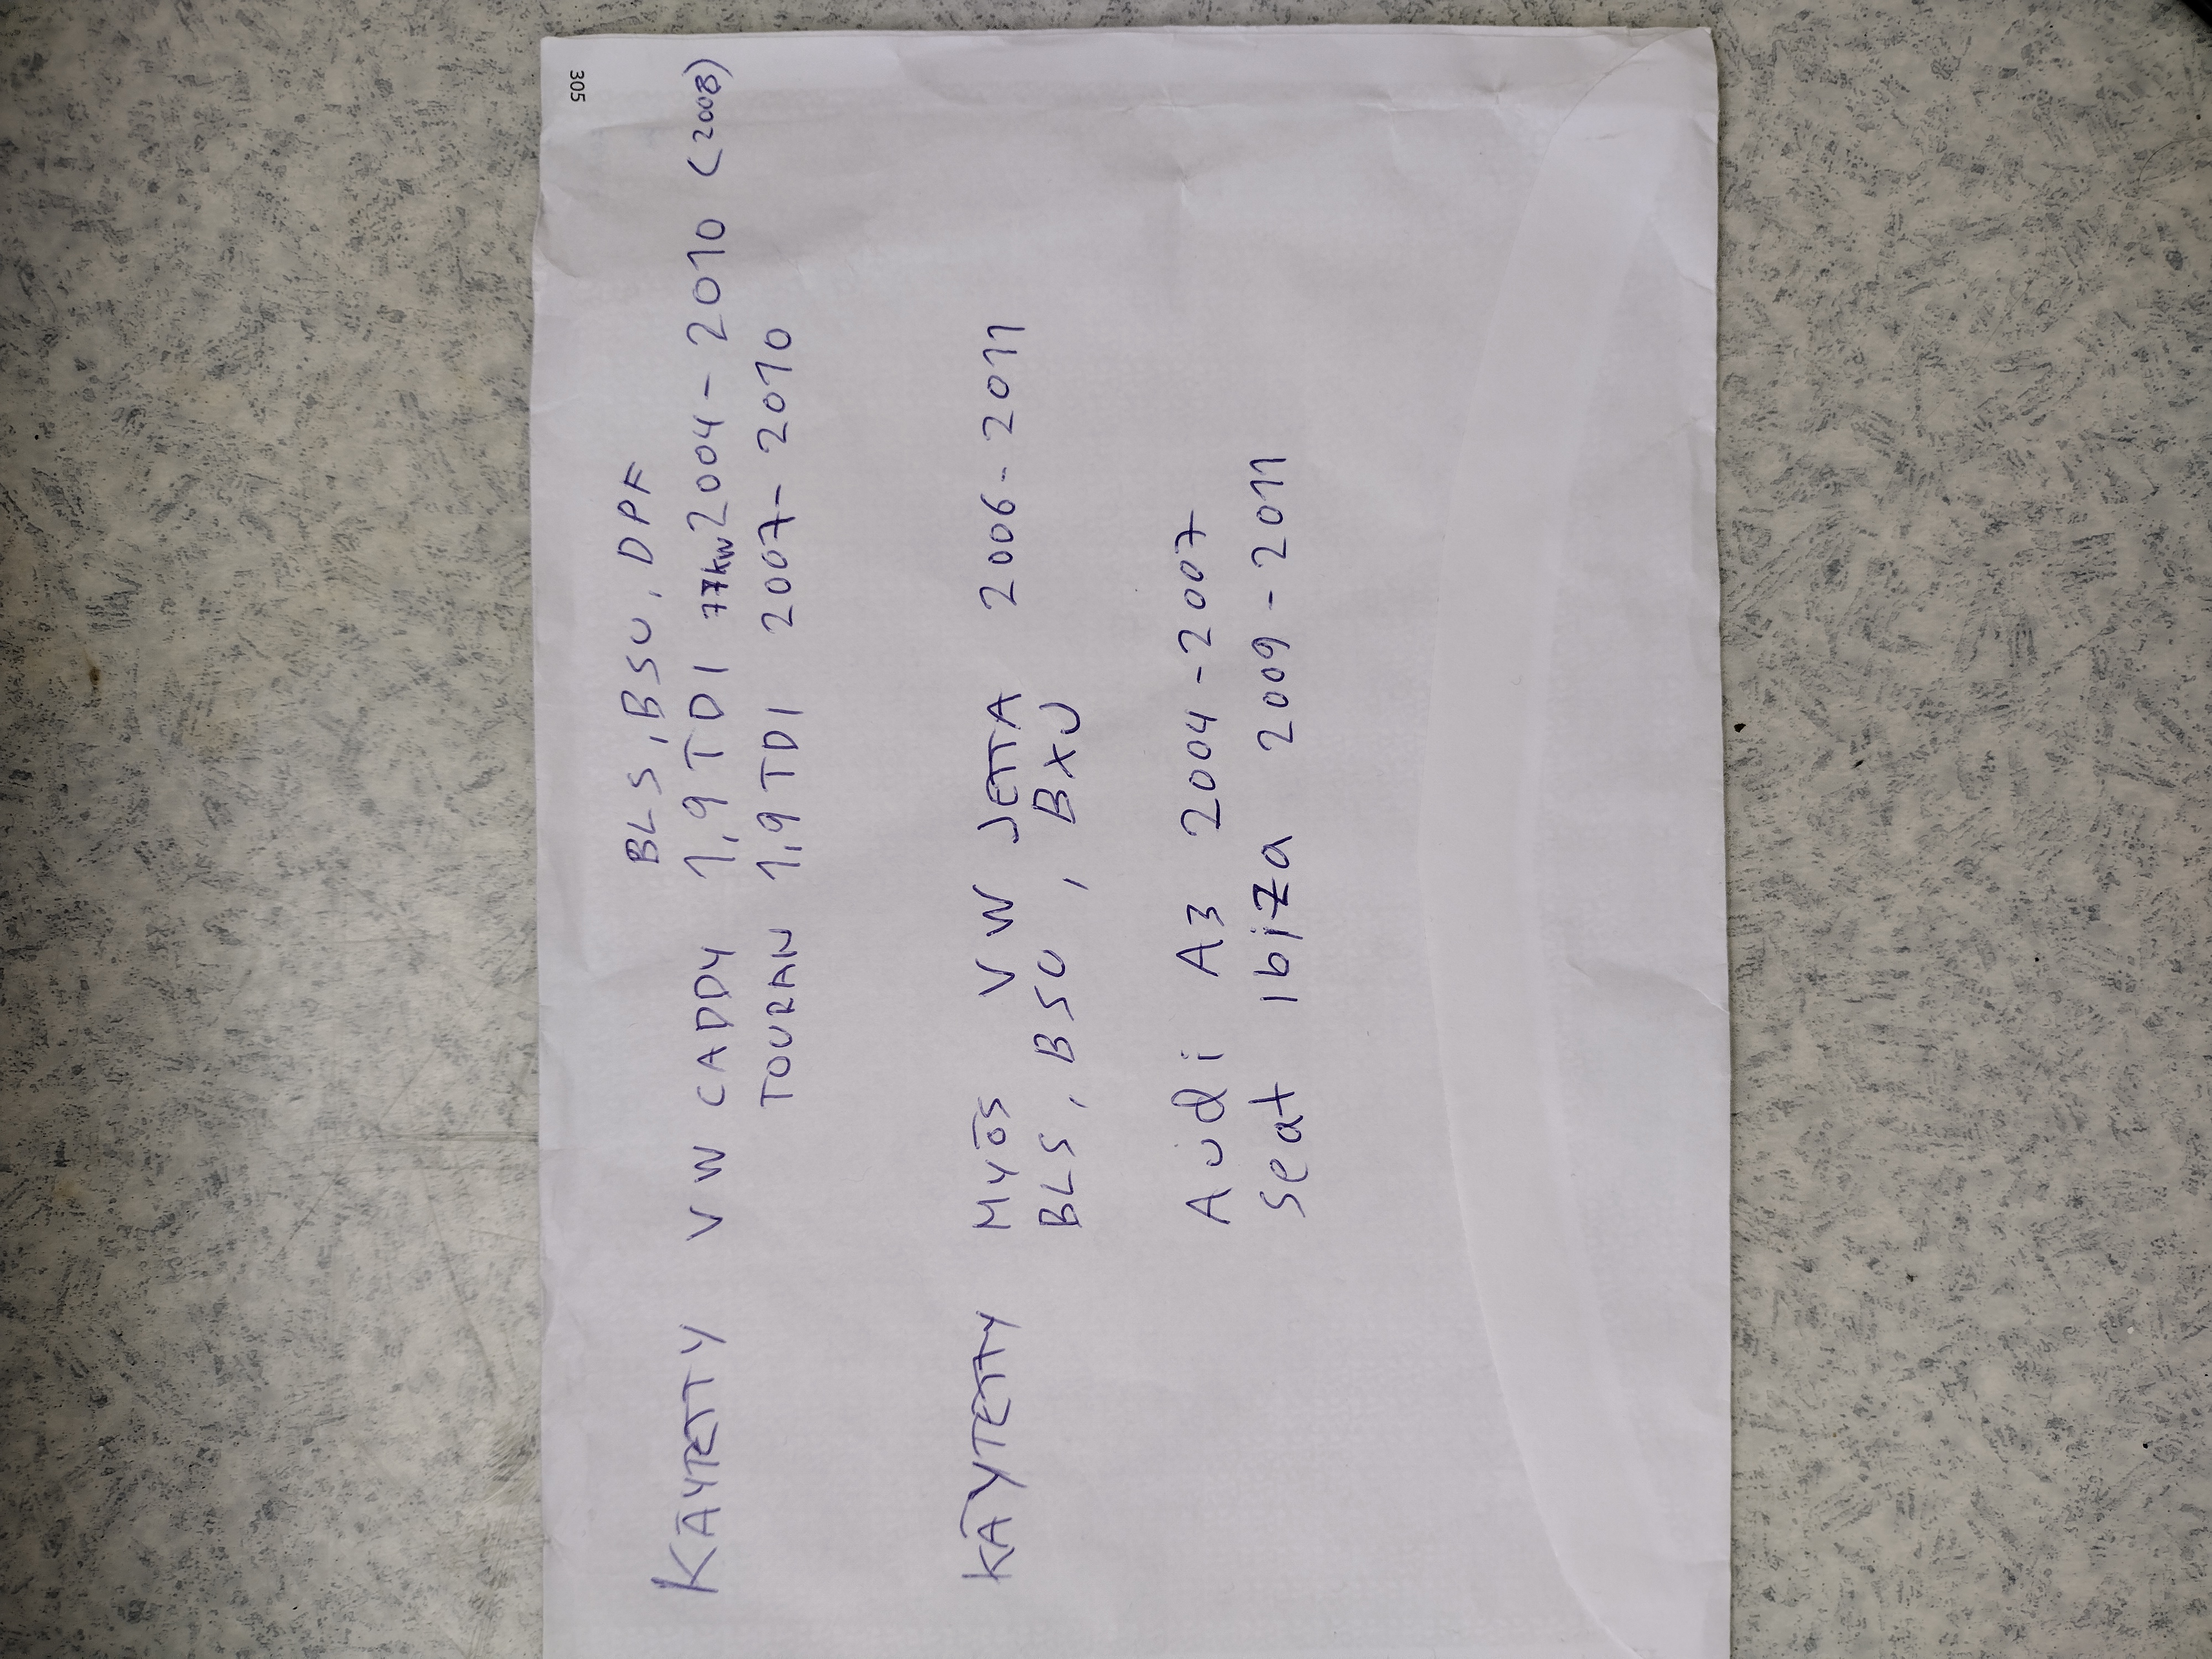 305
BLS, BSU, DPF
KÄYTETTY VW CADDY 1,9 TDI 77kw 2004-2010 (2008)
TOURAN 1.9 TDI 2007-2010
KÄYTETTY MYÖS VW JETTA 2006-2011
BLS, BSU, BXU
AUdi A3 2004-2007
seat ibiza 2009-2011